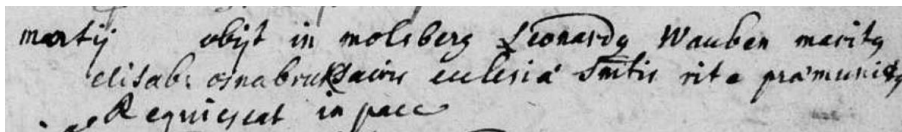 martij obijt in molsberg Leonardg Wauben maritg
elisab: osnabruk sacris eclesia Sntis rite præmunitg
Requiescat in pace